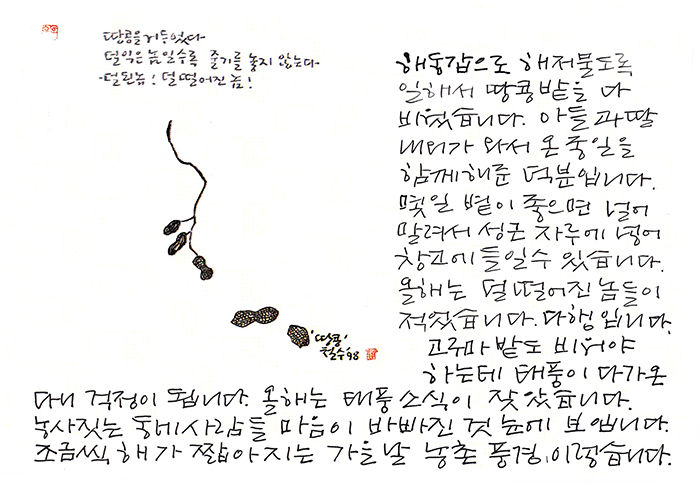 땅콩을 거두었다
덜익은 놈일수록 줄기를 놓지 않는다
덜된놈! 덜 떨어진 놈!
해동갑으로 해저물도록
일해서 땅콩밭을 다
비웠습니다. 아들과 딸
내외가 와서 온종일을
함께해준 덕분입니다.
몇일 볕이 좋으면 널어
말려서 성근 자루에 넣어
창고에 들일수 있습니다.
올해는 덜떨어진 놈들이
적었습니다. 다행입니다.
'땅콩'
철수 '98
고구마 밭도 비워야
하는데 태풍이 다가온
다니 걱정이 됩니다. 올해는 태풍소식이 잦았습니다.
농사짓는 동네사람들 마음이 바빠진 것 눈에 보입니다.
조금씩 해가 짧아지는 가을날 농촌 풍경, 이렇습니다.